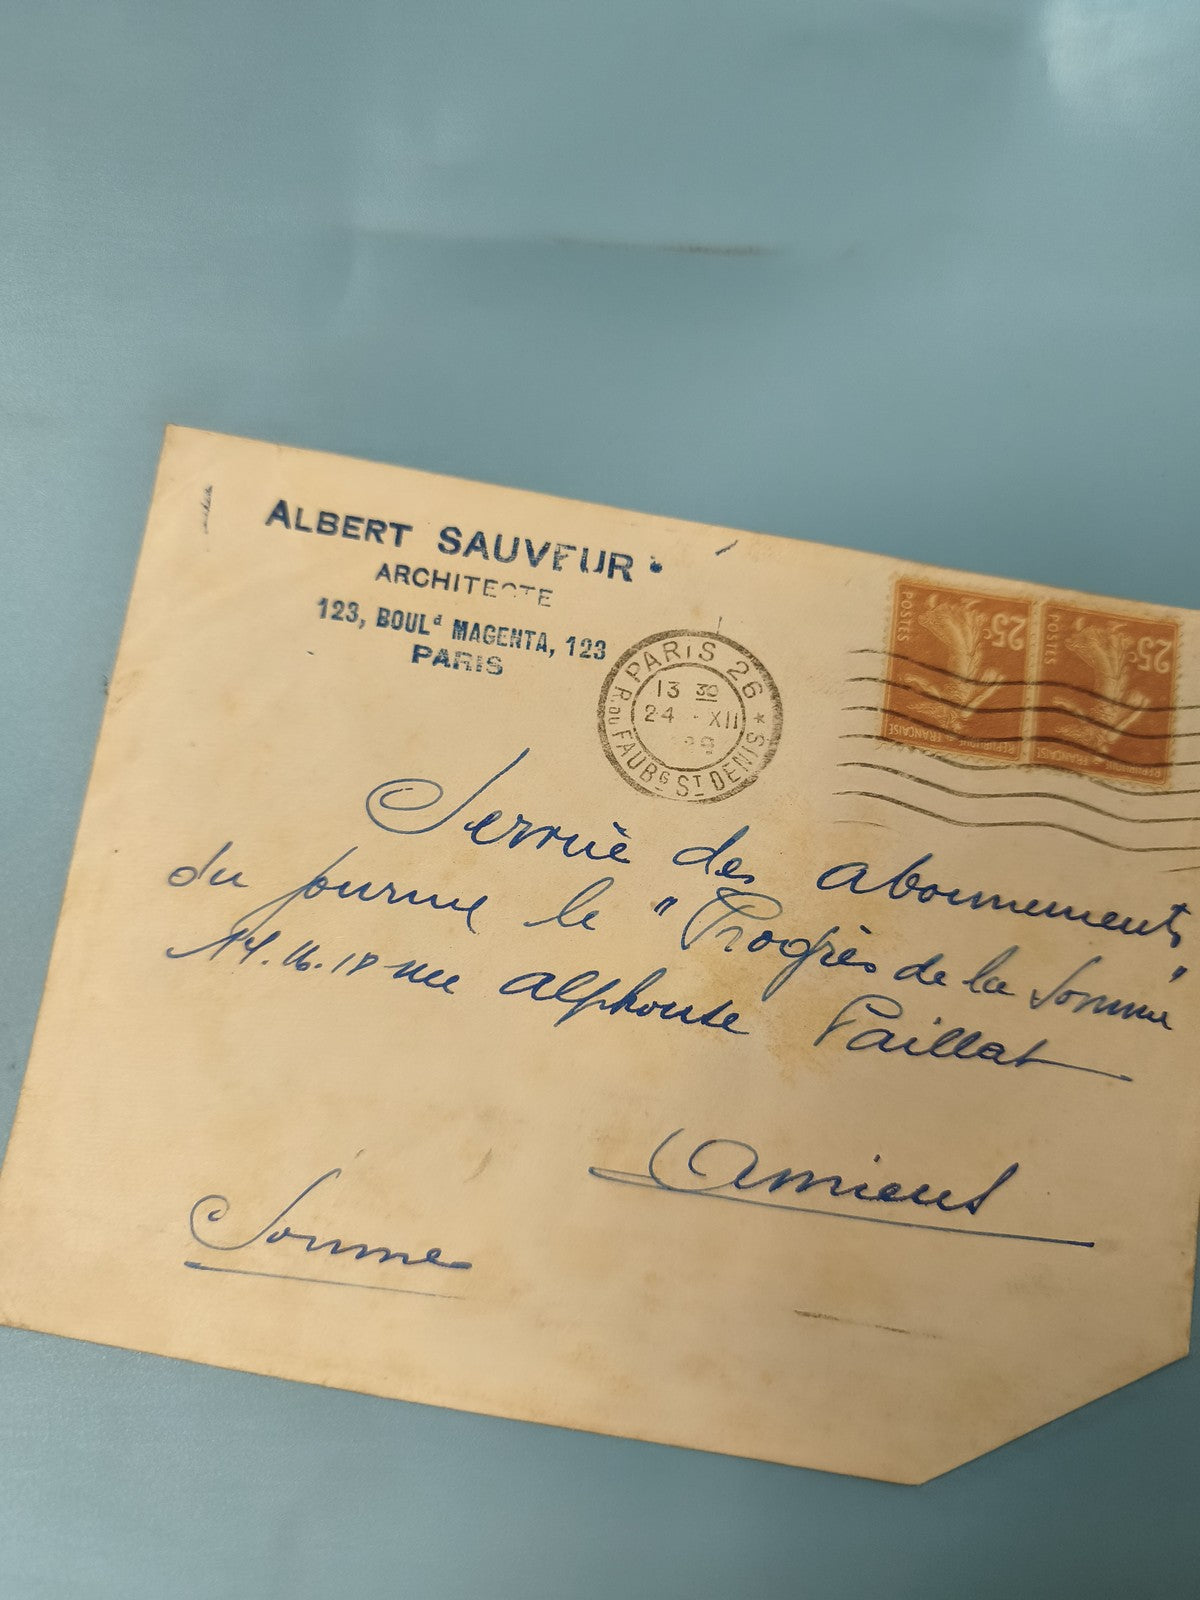 ALBERT SAUVEUR
ARCHITECTE
123, BOULd MAGENTA, 123
PARIS
PARIS 26
13 30
24 - XII
R. DU FAUBG ST DENIS
POSTES 25c
REPUBLIQUE FRANÇAISE
POSTES 25c
REPUBLIQUE FRANÇAISE
Service des abonnements
du journal le "Progrès de la Somme"
14.16.18 rue Alphonse Paillat
Amiens
Somme